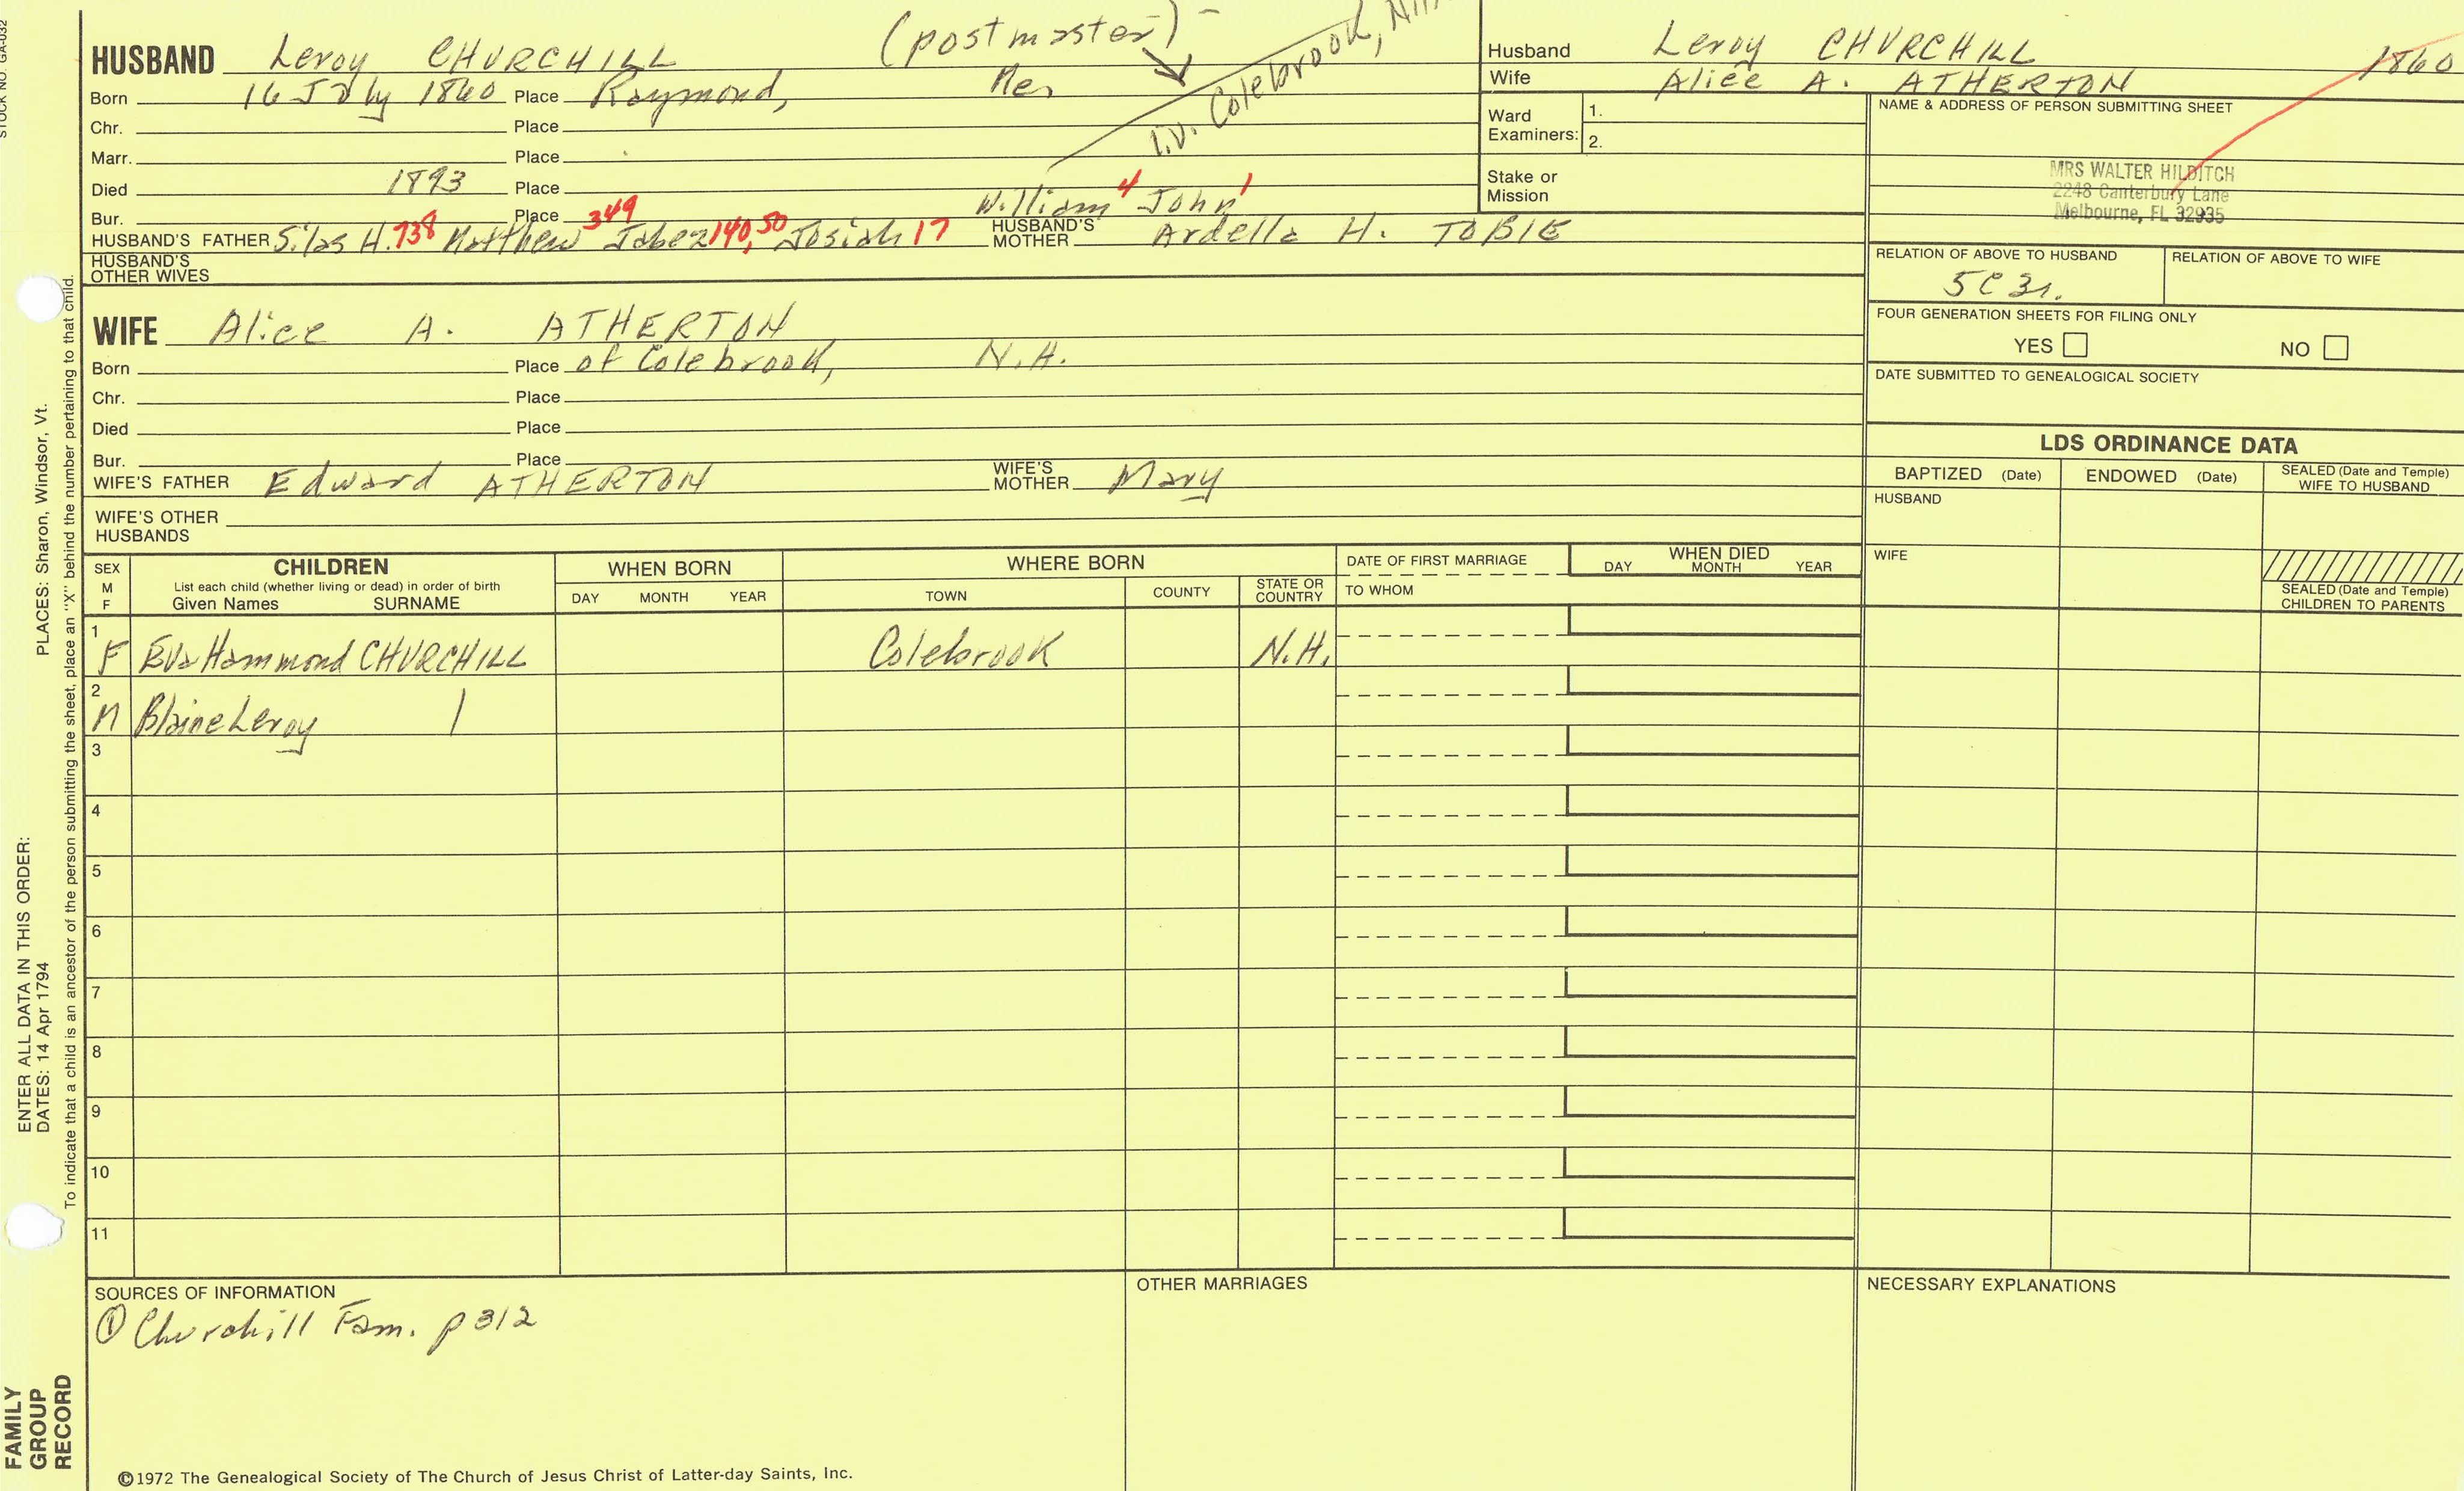 STOCK NO. GA-032
HUSBAND Leroy CHURCHILL (postmaster) -
Born 16 July 1860 Place Raymond, Me.
liv. Colebrook, N.H.
Chr. Place
Marr. Place
Died 1893 Place
Bur. Place
HUSBAND'S FATHER Silas H. 738 Matthew 349 Jabez 140, 50 Josiah 17 William 4 John 1
HUSBAND'S MOTHER Ardella H. TOBIE
HUSBAND'S OTHER WIVES
WIFE Alice A. ATHERTON
Born Place of Colebrook, N.H.
Chr. Place
Died Place
Bur. Place
WIFE'S FATHER Edward ATHERTON WIFE'S MOTHER Mary
WIFE'S OTHER HUSBANDS
Husband Leroy CHURCHILL 1860
Wife Alice A. ATHERTON
Ward Examiners: 1. 2.
Stake or Mission
NAME & ADDRESS OF PERSON SUBMITTING SHEET
MRS WALTER HILDITCH
2248 Canterbury Lane
Melbourne, FL 32935
RELATION OF ABOVE TO HUSBAND RELATION OF ABOVE TO WIFE
5C 3r.
FOUR GENERATION SHEETS FOR FILING ONLY
YES NO
DATE SUBMITTED TO GENEALOGICAL SOCIETY
LDS ORDINANCE DATA
BAPTIZED (Date) ENDOWED (Date) SEALED (Date and Temple) WIFE TO HUSBAND
HUSBAND
WIFE
SEALED (Date and Temple) CHILDREN TO PARENTS
SEX M F
CHILDREN
List each child (whether living or dead) in order of birth
Given Names SURNAME
WHEN BORN
DAY MONTH YEAR
WHERE BORN
TOWN COUNTY STATE OR COUNTRY
DATE OF FIRST MARRIAGE
TO WHOM
WHEN DIED
DAY MONTH YEAR
1 F Eva Hammond CHURCHILL Colebrook N.H.
2 M Blaine Leroy |
3
4
5
6
7
8
9
10
11
SOURCES OF INFORMATION
① Churchill Fam. p 312
OTHER MARRIAGES
NECESSARY EXPLANATIONS
©1972 The Genealogical Society of The Church of Jesus Christ of Latter-day Saints, Inc.
FAMILY GROUP RECORD
ENTER ALL DATA IN THIS ORDER:
DATES: 14 Apr 1794
PLACES: Sharon, Windsor, Vt.
To indicate that a child is an ancestor of the person submitting the sheet, place an "X" behind the number pertaining to that child.